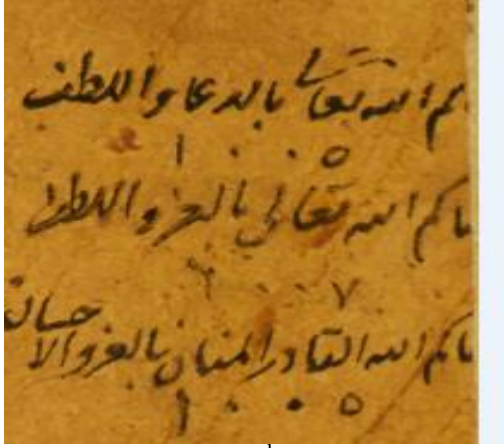 كم الله تعالى بالدعا واللطف
١٠٠٥
الله تعالى بالعز واللطف
٧
كم الله القادر المنان بالعز والاحسان
١٠٠٥